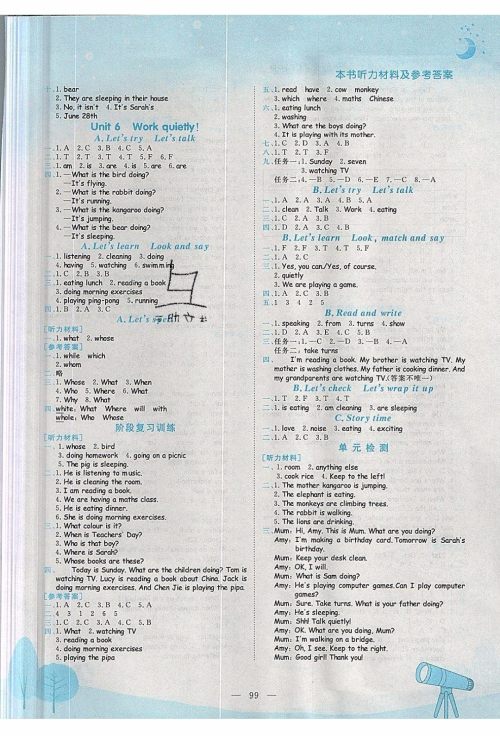 本书听力材料及参考答案
十、1. bear
2. They are sleeping in their house
3. No, it isn't 4. It's Sarah's
5. June 28th
Unit 6 Work quietly!
A. Let's try Let's talk
一、1. A 2. C 3. B 4. C 5. A
二、1. T 2. T 3. T 4. T 5. F 6. F
三、1. am 2. is 3. are 4. is 5. are 6. are
四、1. —What is the bird doing?
—It's flying.
2. —What is the rabbit doing?
—It's running.
3. —What is the kangaroo doing?
—It's jumping.
4. —What is the bear doing?
—It's sleeping.
A. Let's learn Look and say
一、1. listening 2. cleaning 3. doing
4. having 5. watching 6. swimming
二、1. C 2. B 3. B
三、1. eating lunch 2. reading a book
3. doing morning exercises
4. playing ping-pong 5. running
四、1. B 2. A 3. C
A. Let's spell
[听力材料]
一、1. what 2. whose
[参考答案]
一、1. while which
2. whom
二、略
三、1. Whose 2. What 3. When
4. Who 5. Where 6. What
7. Why 8. What
四、white: What Where will with
whole: Who Whose
阶段复习训练
[听力材料]
一、1. whose 2. bird
3. doing homework 4. going on a picnic
5. The pig is sleeping.
二、1. He is listening to music.
2. He is cleaning the room.
3. I am reading a book.
4. We are having a maths class.
5. He is eating dinner.
6. She is doing morning exercises.
三、1. What colour is it?
2. When is Teachers' Day?
3. Who is that boy?
4. Where is Sarah?
5. Whose books are these?
四、Today is Sunday. What are the children doing? Tom is
watching TV. Lucy is reading a book about China. Jack is
doing morning exercises. And Chen Jie is playing the pipa.
[参考答案]
一、1. A 2. C 3. B 4. A 5. C
二、4 3 1 2 6 5
三、1. C 2. C 3. A 4. C 5. B
四、1. What 2. watching TV
3. reading a book
4. doing morning exercises
5. playing the pipa
五、1. read have 2. cow monkey
3. which where 4. maths Chinese
六、1. eating lunch
2. washing
3. What are the boys doing?
4. It is playing with its mother.
七、1. C 2. D 3. A 4. B 5. A
八、1. T 2. T 3. F
九、任务一：1. Sunday 2. seven
3. watching TV
任务二：4. —B 5. —D 6. —E 7. —C 8. —A
B. Let's try Let's talk
一、1. A 2. A 3. A 4. B 5. A
二、1. clean 2. Talk 3. Work 4. eating
三、1. C 2. A 3. B
四、1. D 2. A 3. C 4. B
B. Let's learn Look, match and say
一、1. F 2. F 3. T 4. T 5. F
二、1. A 2. C
三、1. Yes, you can./Yes, of course.
2. quietly
3. We are playing a game.
四、1. A 2. C 3. B
五、1 3 4 2 5
B. Read and write
一、1. speaking 2. from 3. turns 4. show
二、1. D 2. A 3. E 4. C 5. B
三、任务一：1. —C 2. —D 3. —B 4. —A
任务二：take turns
四、I'm reading a book. My brother is watching TV. My
mother is washing clothes. My father is cooking dinner. And
my grandparents are watching TV.(答案不唯一)
B. Let's check Let's wrap it up
一、1. T 2. F 3. T 4. T
二、1. is eating 2. am cleaning 3. are sleeping
C. Story time
一、1. love 2. noise 3. eating 4. exciting
二、1. A 2. C 3. B
单元检测
[听力材料]
一、1. room 2. anything else
3. cook rice 4. Keep to the left!
二、1. The mother kangaroo is jumping.
2. The elephant is eating.
3. The monkeys are climbing trees.
4. The rabbit is walking.
5. The lions are drinking.
三、Mum: Hi, Amy. This is Mum. What are you doing?
Amy: I'm making a birthday card. Tomorrow is Sarah's
birthday.
Mum: Keep your desk clean.
Amy: OK, I will.
Mum: What is Sam doing?
Amy: He's playing computer games.Can I play computer
games?
Mum: Sure. Take turns. What is your father doing?
Amy: He's sleeping.
Mum: Shh! Talk quietly!
Amy: OK. What are you doing, Mum?
Mum: I'm walking on a bridge.
Amy: Oh, I see. Keep to the right.
Mum: Good girl! Thank you!
99